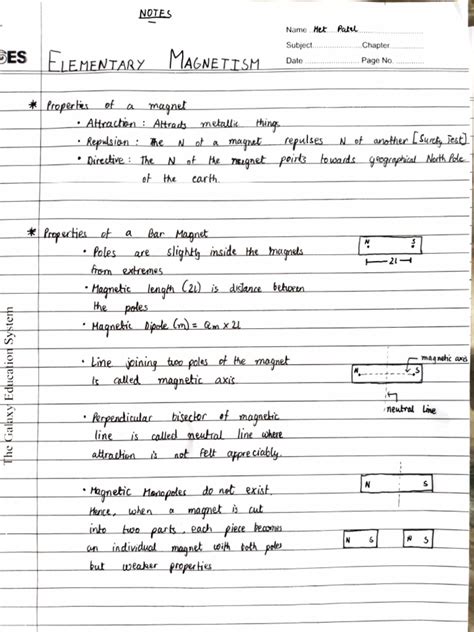 NOTES
Name Met Patel
Subject Chapter
Date Page No.
ES
ELEMENTARY MAGNETISM
* Properties of a magnet
• Attraction : Attracts metallic things
• Repulsion : The N of a magnet repulses N of another [Surety Test]
• Directive : The N of the magnet points towards geographical North Pole
of the earth.
* Properties of a Bar Magnet
• Poles are slightly inside the magnets
from extremes
N S
2l
• Magnetic length (2l) is distance between
the poles
• Magnetic Dipole (m) = Qm × 2l
• Line joining two poles of the magnet
is called magnetic axis
magnetic axis
N S
neutral line
• Perpendicular bisector of magnetic
line is called neutral line where
attraction is not felt appreciably.
• Magnetic Monopoles do not exist.
Hence, when a magnet is cut
into two parts, each piece becomes
an individual magnet with both poles
but weaker properties
N S
N S N S
The Galaxy Education System